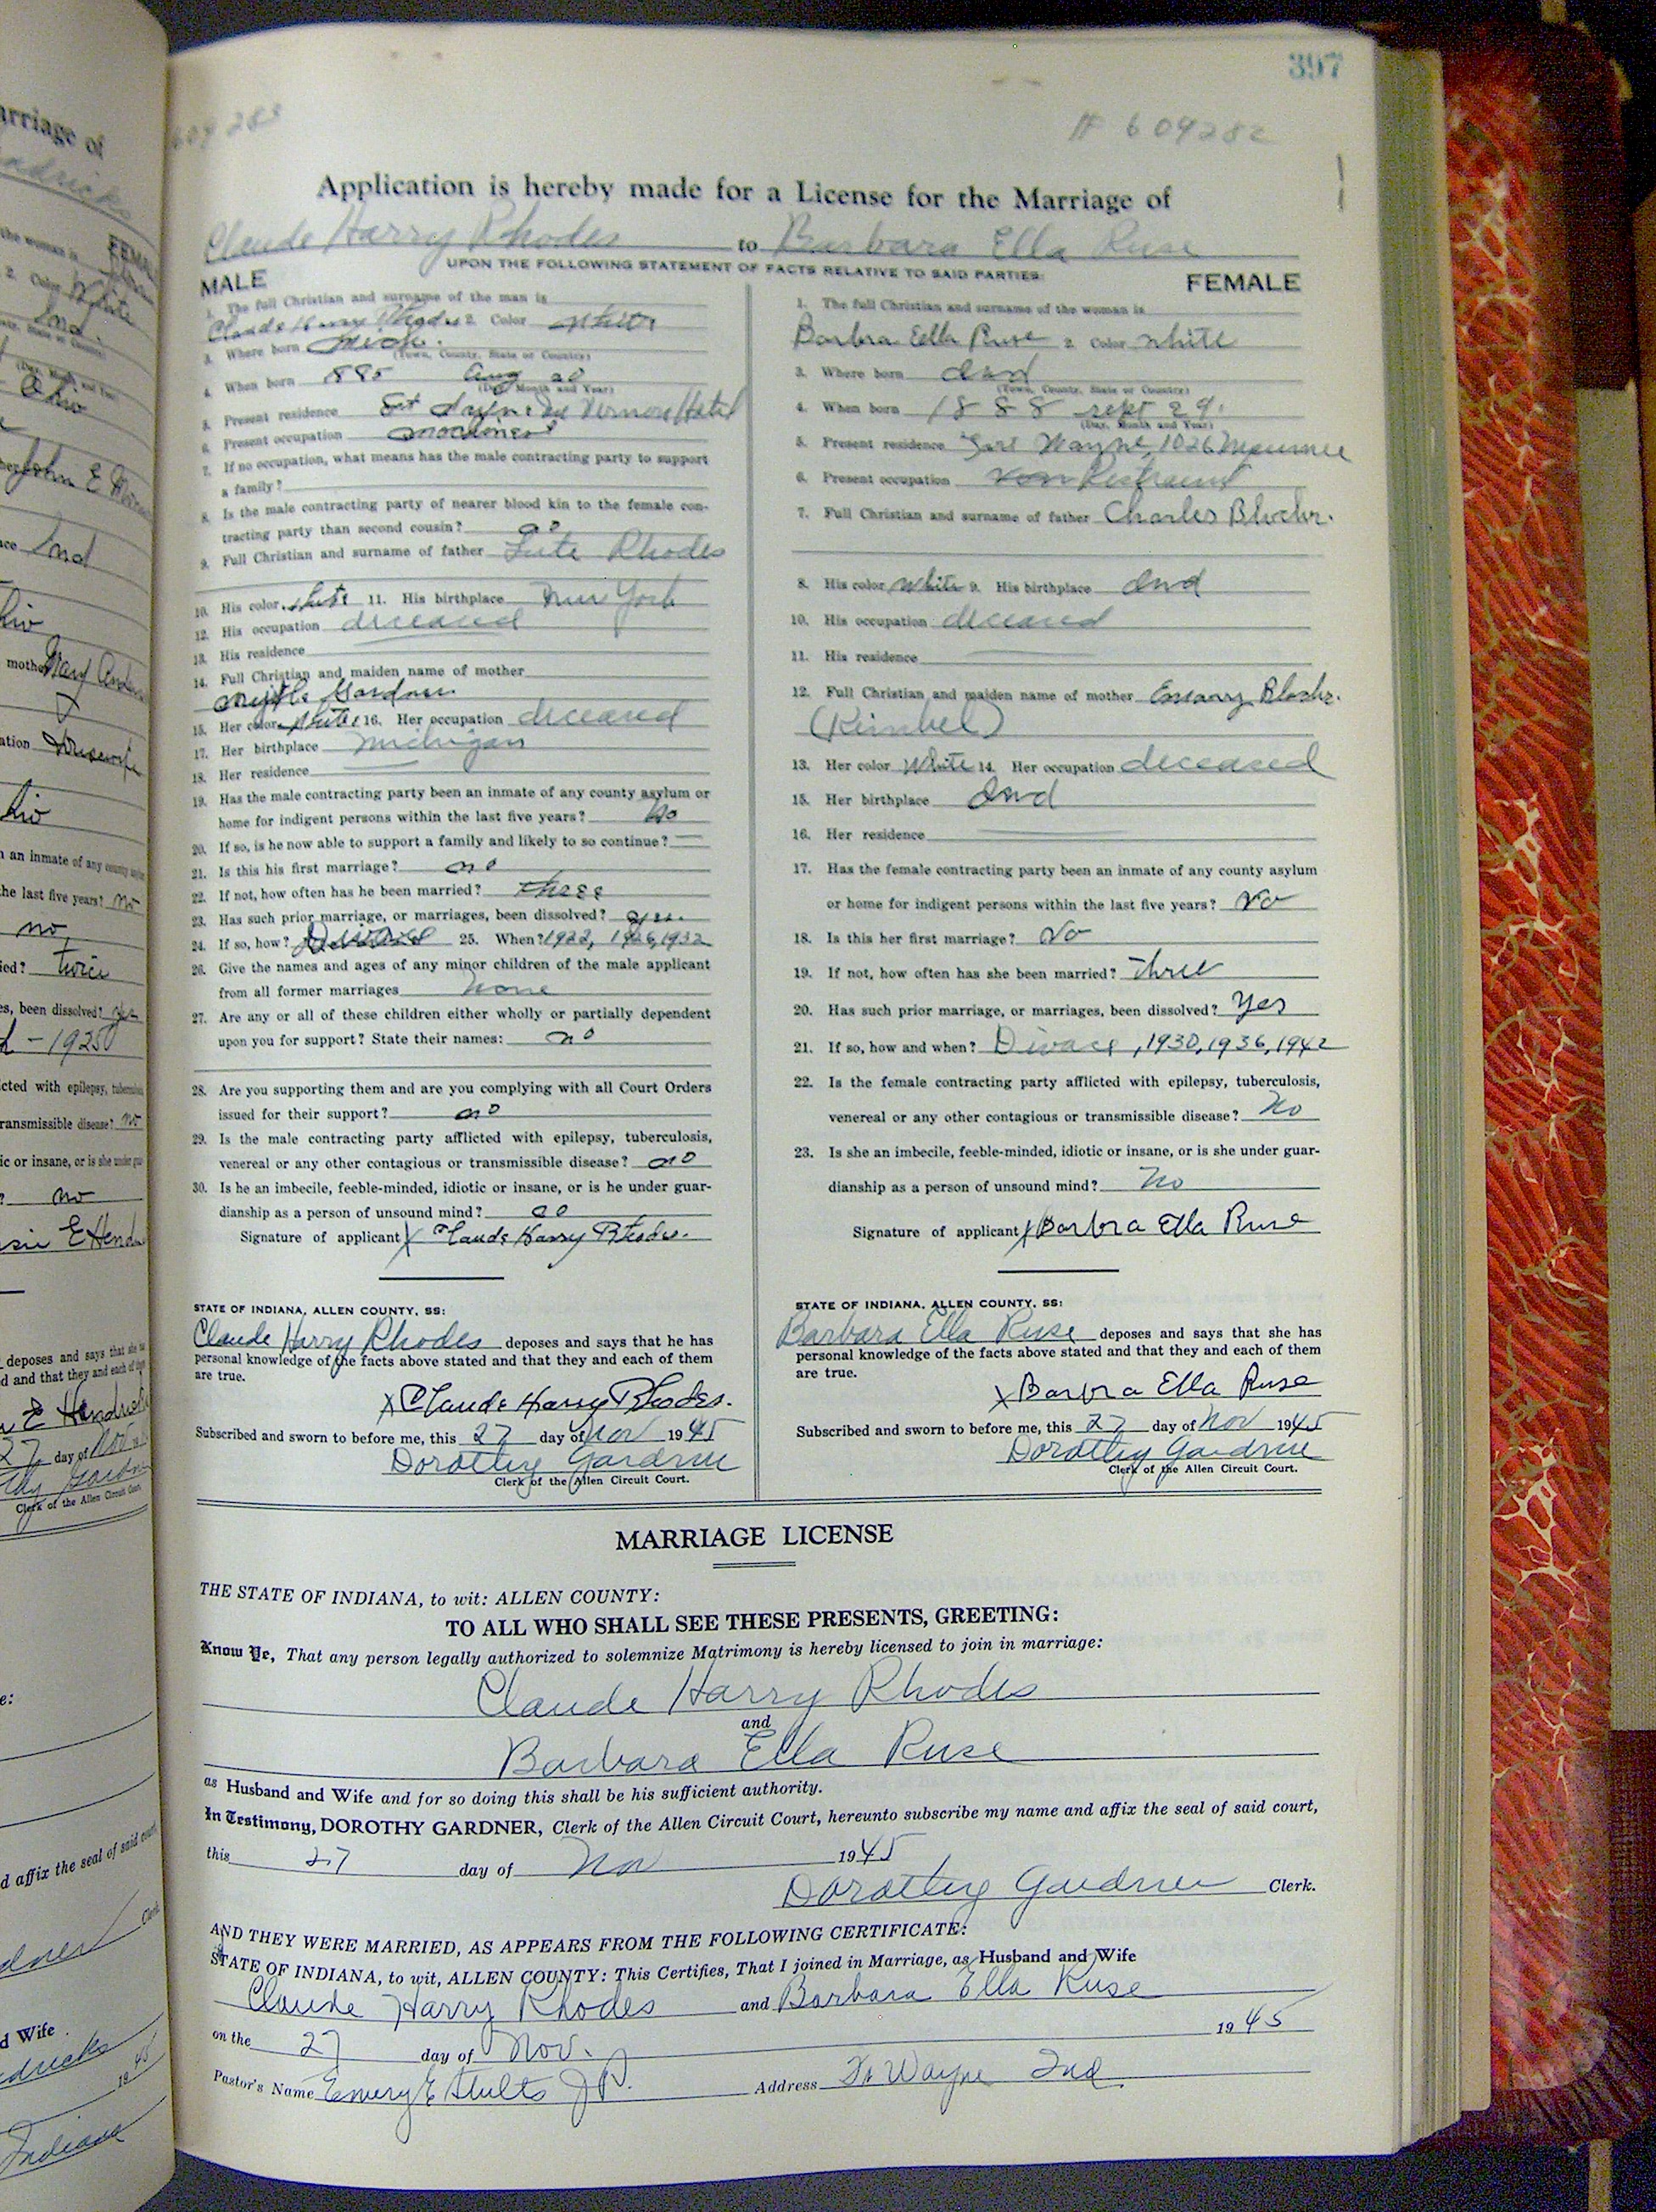 397
# 609282
Application is hereby made for a License for the Marriage of
Claude Harry Rhodes to Barbara Ella Ruse
UPON THE FOLLOWING STATEMENT OF FACTS RELATIVE TO SAID PARTIES:
MALE
1. The full Christian and surname of the man is
Claude Harry Rhodes 2. Color white
3. Where born Mich.
(Town, County, State or Country)
4. When born 1885 Aug 20
(Day, Month and Year)
5. Present residence Vernon Hotel
6. Present occupation machinest
7. If no occupation, what means has the male contracting party to support
a family?
8. Is the male contracting party of nearer blood kin to the female con-
tracting party than second cousin? no
9. Full Christian and surname of father Lute Rhodes
10. His color white 11. His birthplace New York
12. His occupation deceased
13. His residence
14. Full Christian and maiden name of mother
Myrtle Gardner
15. Her color white 16. Her occupation deceased
17. Her birthplace Michigan
18. Her residence
19. Has the male contracting party been an inmate of any county asylum or
home for indigent persons within the last five years? No
20. If so, is he now able to support a family and likely to so continue?
21. Is this his first marriage? no
22. If not, how often has he been married? three
23. Has such prior marriage, or marriages, been dissolved? yes.
24. If so, how? Divorce 25. When? 1922, 1926, 1932
26. Give the names and ages of any minor children of the male applicant
from all former marriages none
27. Are any or all of these children either wholly or partially dependent
upon you for support? State their names: no
28. Are you supporting them and are you complying with all Court Orders
issued for their support? no
29. Is the male contracting party afflicted with epilepsy, tuberculosis,
venereal or any other contagious or transmissible disease? no
30. Is he an imbecile, feeble-minded, idiotic or insane, or is he under guar-
dianship as a person of unsound mind? no
Signature of applicant X Claude Harry Rhodes.
STATE OF INDIANA, ALLEN COUNTY, SS:
Claude Harry Rhodes deposes and says that he has
personal knowledge of the facts above stated and that they and each of them
are true.
X Claude Harry Rhodes.
Subscribed and sworn to before me, this 27 day of Nov 1945
Dorothy Gardner
Clerk of the Allen Circuit Court.
FEMALE
1. The full Christian and surname of the woman is
Barbra Ella Ruse 2. Color white
3. Where born Ind
(Town, County, State or Country)
4. When born 1888 sept 29.
(Day, Month and Year)
5. Present residence Fort Wayne, 1026
6. Present occupation
7. Full Christian and surname of father Charles
8. His color White 9. His birthplace Ind
10. His occupation deceased
11. His residence
12. Full Christian and maiden name of mother
(Kimbel)
13. Her color White 14. Her occupation deceased
15. Her birthplace Ind
16. Her residence
17. Has the female contracting party been an inmate of any county asylum
or home for indigent persons within the last five years? No
18. Is this her first marriage? No
19. If not, how often has she been married? Three
20. Has such prior marriage, or marriages, been dissolved? Yes
21. If so, how and when? Divorce, 1930, 1936, 1942
22. Is the female contracting party afflicted with epilepsy, tuberculosis,
venereal or any other contagious or transmissible disease? No
23. Is she an imbecile, feeble-minded, idiotic or insane, or is she under guar-
dianship as a person of unsound mind? No
Signature of applicant X Barbra Ella Ruse
STATE OF INDIANA, ALLEN COUNTY, SS:
Barbara Ella Ruse deposes and says that she has
personal knowledge of the facts above stated and that they and each of them
are true.
X Barbra Ella Ruse
Subscribed and sworn to before me, this 27 day of Nov 1945
Dorothy Gardner
Clerk of the Allen Circuit Court.
MARRIAGE LICENSE
THE STATE OF INDIANA, to wit: ALLEN COUNTY:
TO ALL WHO SHALL SEE THESE PRESENTS, GREETING:
Know Ye, That any person legally authorized to solemnize Matrimony is hereby licensed to join in marriage:
Claude Harry Rhodes
and
Barbara Ella Ruse
as Husband and Wife and for so doing this shall be his sufficient authority.
In Testimony, DOROTHY GARDNER, Clerk of the Allen Circuit Court, hereunto subscribe my name and affix the seal of said court,
this 27 day of Nov 1945
Dorothy Gardner Clerk.
AND THEY WERE MARRIED, AS APPEARS FROM THE FOLLOWING CERTIFICATE:
STATE OF INDIANA, to wit, ALLEN COUNTY: This Certifies, That I joined in Marriage, as Husband and Wife
Claude Harry Rhodes and Barbara Ella Ruse
on the 27 day of Nov. 1945
Pastor's Name Emery E Stults J.P. Address Ft Wayne Ind.